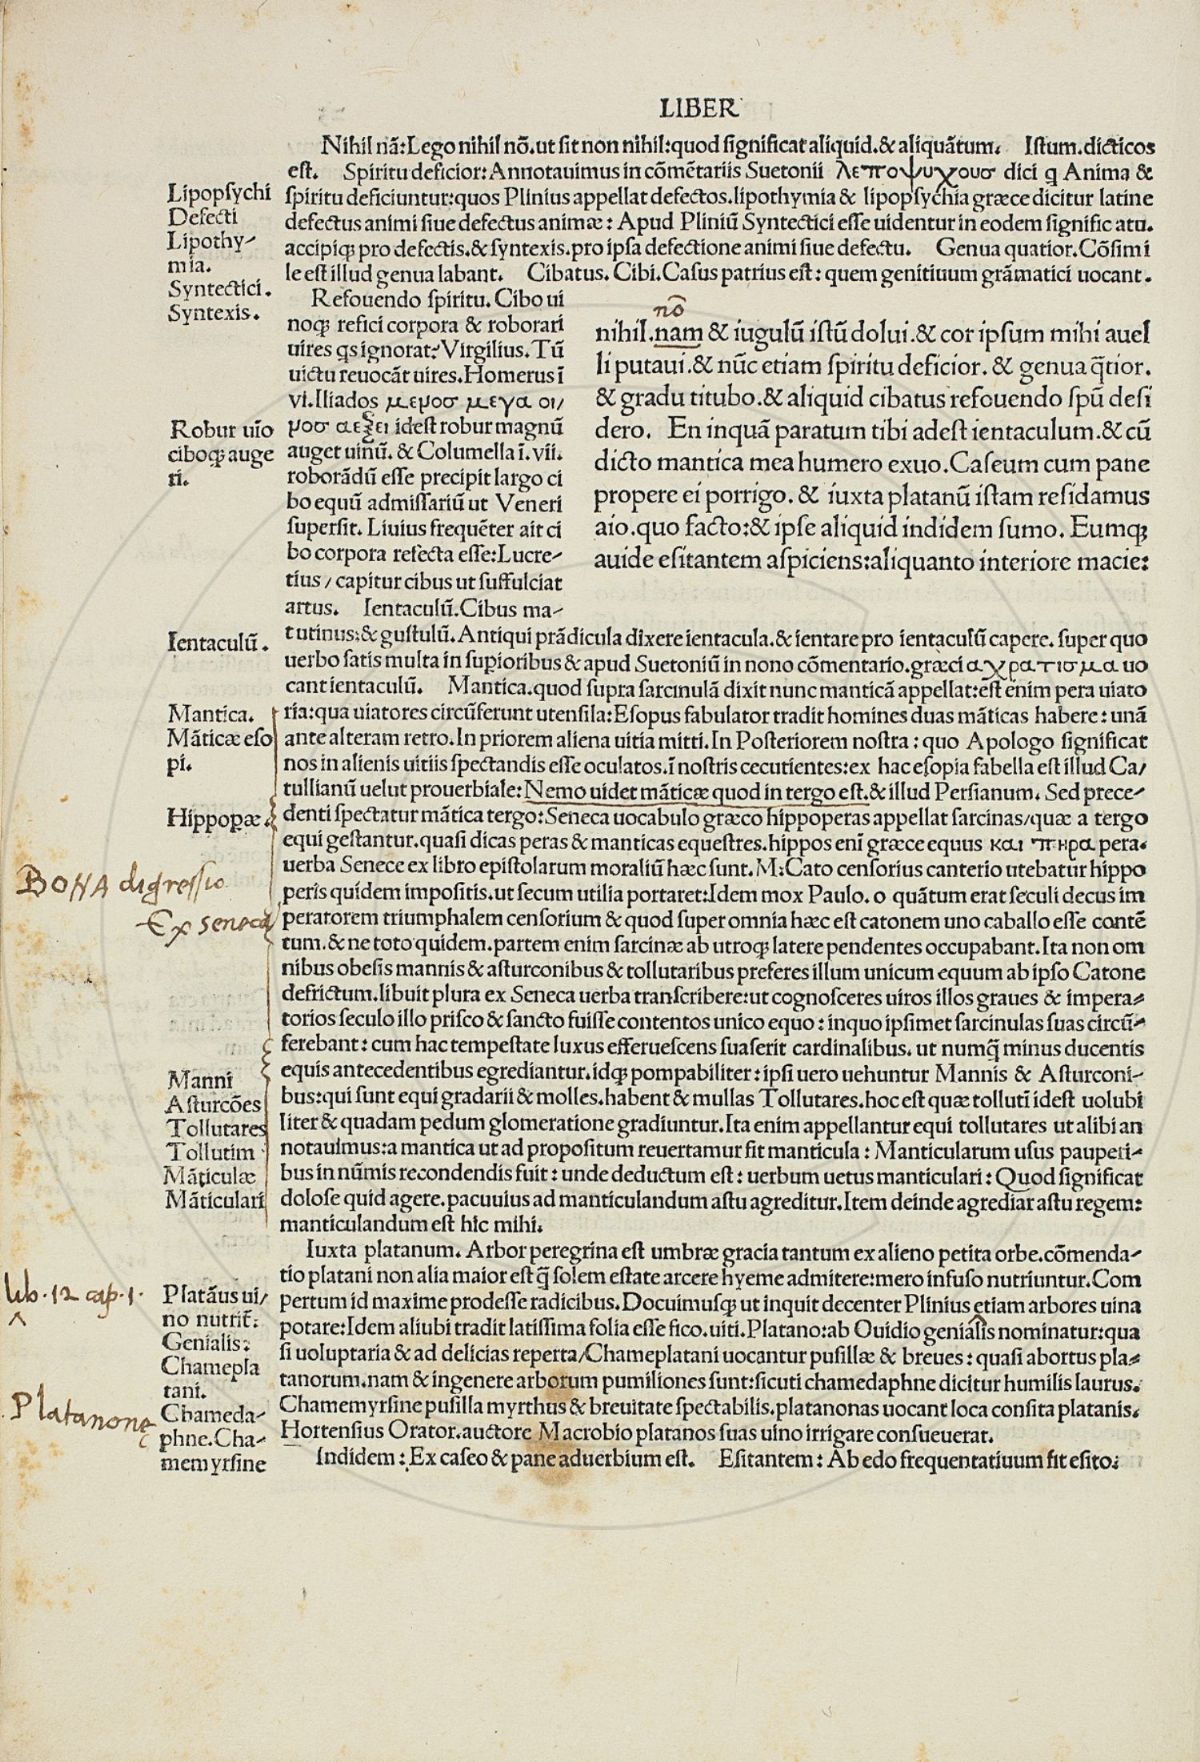 LIBER
Nihil nã: Lego nihil nõ. ut sit non nihil: quod significat aliquid. & aliquãtum. Istum. dicticos
est. Spiritu deficior: Annotauimus in cõmẽtariis Suetonii λεποψυχουσ dici q̨ Anima &
spiritu deficiuntur: quos Plinius appellat defectos. lipothymia & lipopsychia græce dicitur latine
defectus animi siue defectus animæ: Apud Pliniũ Syntectici esse uidentur in eodem significatu.
accipiq; pro defectis. & syntexis. pro ipsa defectione animi siue defectu. Genua quatior. Cõsimi
le est illud genua labant. Cibatus. Cibi. Casus patrius est: quem genitiuum grãmatici uocant.
Lipopsychi
Defecti
Lipothy-
mia.
Syntectici.
Syntexis.
Refouendo spiritu. Cibo ui
noq; refici corpora & roborari
uires q̨s ignorat? Virgilius. Tũ
uictu reuocãt uires. Homerus ĩ
vi. Iliados μεμοσ μεγα οι/
μοσ αεξει idest robur magnũ
auget uinũ. & Columella ĩ. vii.
roborãdũ esse precipit largo ci
bo equũ admissariũ ut Veneri
supersit. Liuius frequẽter ait ci
bo corpora refecta esse: Lucre-
tius / capitur cibus ut suffulciat
artus. Ientaculũ. Cibus ma-
Robur uĩo
ciboq; auge
ri.
nõ
nihil. nam & iugulũ istũ dolui. & cor ipsum mihi auel
li putaui. & nũc etiam spiritu deficior. & genua q̃tior.
& gradu titubo. & aliquid cibatus refouendo spũ desi
dero. En inquã paratum tibi adest ientaculum. & cũ
dicto mantica mea humero exuo. Caseum cum pane
propere ei porrigo. & iuxta platanũ istam residamus
aio. quo facto: & ipse aliquid indidem sumo. Eumq;
auide esitantem aspiciens: aliquanto interiore macie:
tutinus: & gustulũ. Antiqui prãdicula dixere ientacula. & ientare pro ientaculũ capere. super quo
uerbo satis multa in supioribus & apud Suetoniũ in nono cõmentario. græci αχρατισμα uo
cant ientaculũ. Mantica. quod supra sarcinulã dixit nunc manticã appellat: est enim pera uiato
ria: qua uiatores circũferunt utensila: Esopus fabulator tradit homines duas mãticas habere: unã
ante alteram retro. In priorem aliena uitia mitti. In Posteriorem nostra: quo Apologo significat
nos in alienis uitiis spectandis esse oculatos. ĩ nostris cecutientes: ex hac esopia fabella est illud Ca-
tullianũ uelut prouerbiale: Nemo uidet mãticæ quod in tergo est. & illud Persianum. Sed prece-
denti spectatur mãtica tergo: Seneca uocabulo græco hippoperas appellat sarcinas/quæ a tergo
equi gestantur. quasi dicas peras & manticas equestres. hippos enĩ græce equus και πηρα pera.
uerba Senece ex libro epistolarum moraliũ hæc sunt. M: Cato censorius canterio utebatur hippo
peris quidem impositis. ut secum utilia portaret: Idem mox Paulo. o quãtum erat seculi decus im
peratorem triumphalem censorium & quod super omnia hæc est catonem uno caballo esse contẽ
tum. & ne toto quidem. partem enim sarcinæ ab utroq; latere pendentes occupabant. Ita non om
nibus obesis mannis & asturconibus & tollutaribus preferes illum unicum equum ab ipso Catone
defrictum. libuit plura ex Seneca uerba transcribere: ut cognosceres uiros illos graues & impera-
torios seculo illo prisco & sancto fuisse contentos unico equo: inquo ipsimet sarcinulas suas circũ-
ferebant: cum hac tempestate luxus efferuescens suaserit cardinalibus. ut numq̃ minus ducentis
equis antecedentibus egrediantur. idq; pompabiliter: ipsi uero uehuntur Mannis & Asturconi-
bus: qui sunt equi gradarii & molles. habent & mullas Tollutares. hoc est quæ tollutĩ idest uolubi
liter & quadam pedum glomeratione gradiuntur. Ita enim appellantur equi tollutares ut alibi an
notauimus: a mantica ut ad propositum reuertamur fit manticula: Manticularum usus pauperi-
bus in nũmis recondendis fuit: unde deductum est: uerbum uetus manticulari: Quod significat
dolose quid agere. pacuuius ad manticulandum astu agreditur. Item deinde agrediar astu regem:
manticulandum est hic mihi.
Ientaculũ.
Mantica.
Mãticæ eso
pi.
Hippopæ.
BONA digressio
Ex seneca
Manni
Asturcões
Tollutares
Tollutim
Mãticulæ
Mãticulari
Iuxta platanum. Arbor peregrina est umbræ gracia tantum ex alieno petita orbe. cõmenda-
tio platani non alia maior est q̃ solem estate arcere hyeme admitere: mero infuso nutriuntur. Com
pertum id maxime prodesse radicibus. Docuimusq; ut inquit decenter Plinius etiam arbores uina
potare: Idem aliubi tradit latissima folia esse fico. uiti. Platano: ab Ouidio genialis nominatur: qua
si uoluptaria & ad delicias reperta/Chameplatani uocantur pusillæ & breues: quasi abortus pla-
tanorum. nam & ingenere arborum pumiliones sunt: sicuti chamedaphne dicitur humilis laurus.
Chamemyrsine pusilla myrthus & breuitate spectabilis. platanonas uocant loca consita platanis.
Hortensius Orator. auctore Macrobio platanos suas uino irrigare consueuerat.
Indidem: Ex caseo & pane aduerbium est. Esitantem: Ab edo frequentatiuum fit esito:
lib. 12 cap. 1.
Platãus ui/
no nutrit:
Genialis:
Chamepla
tani.
Chameda-
phne. Cha-
memyrsine
Platanone